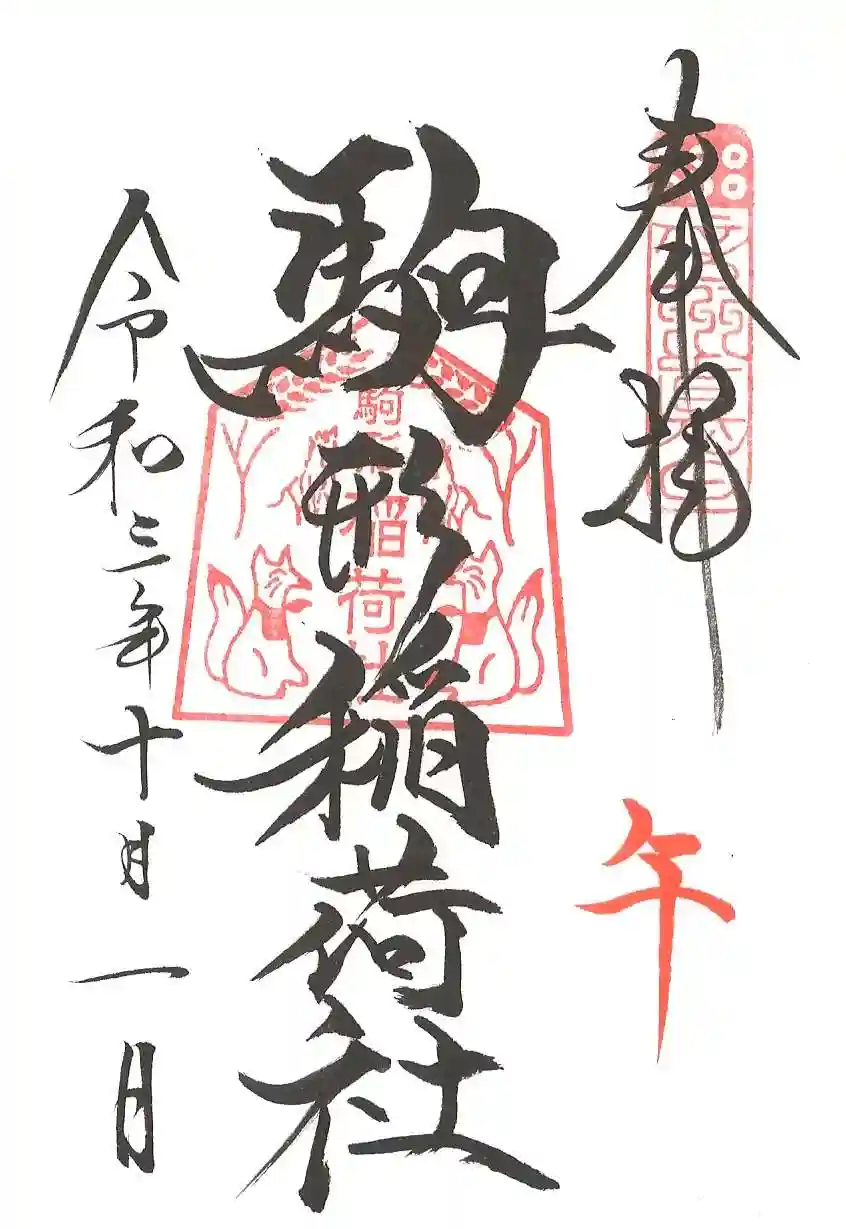 奉拝
午
駒形稲荷社
駒形稲荷社
令和三年十月一日